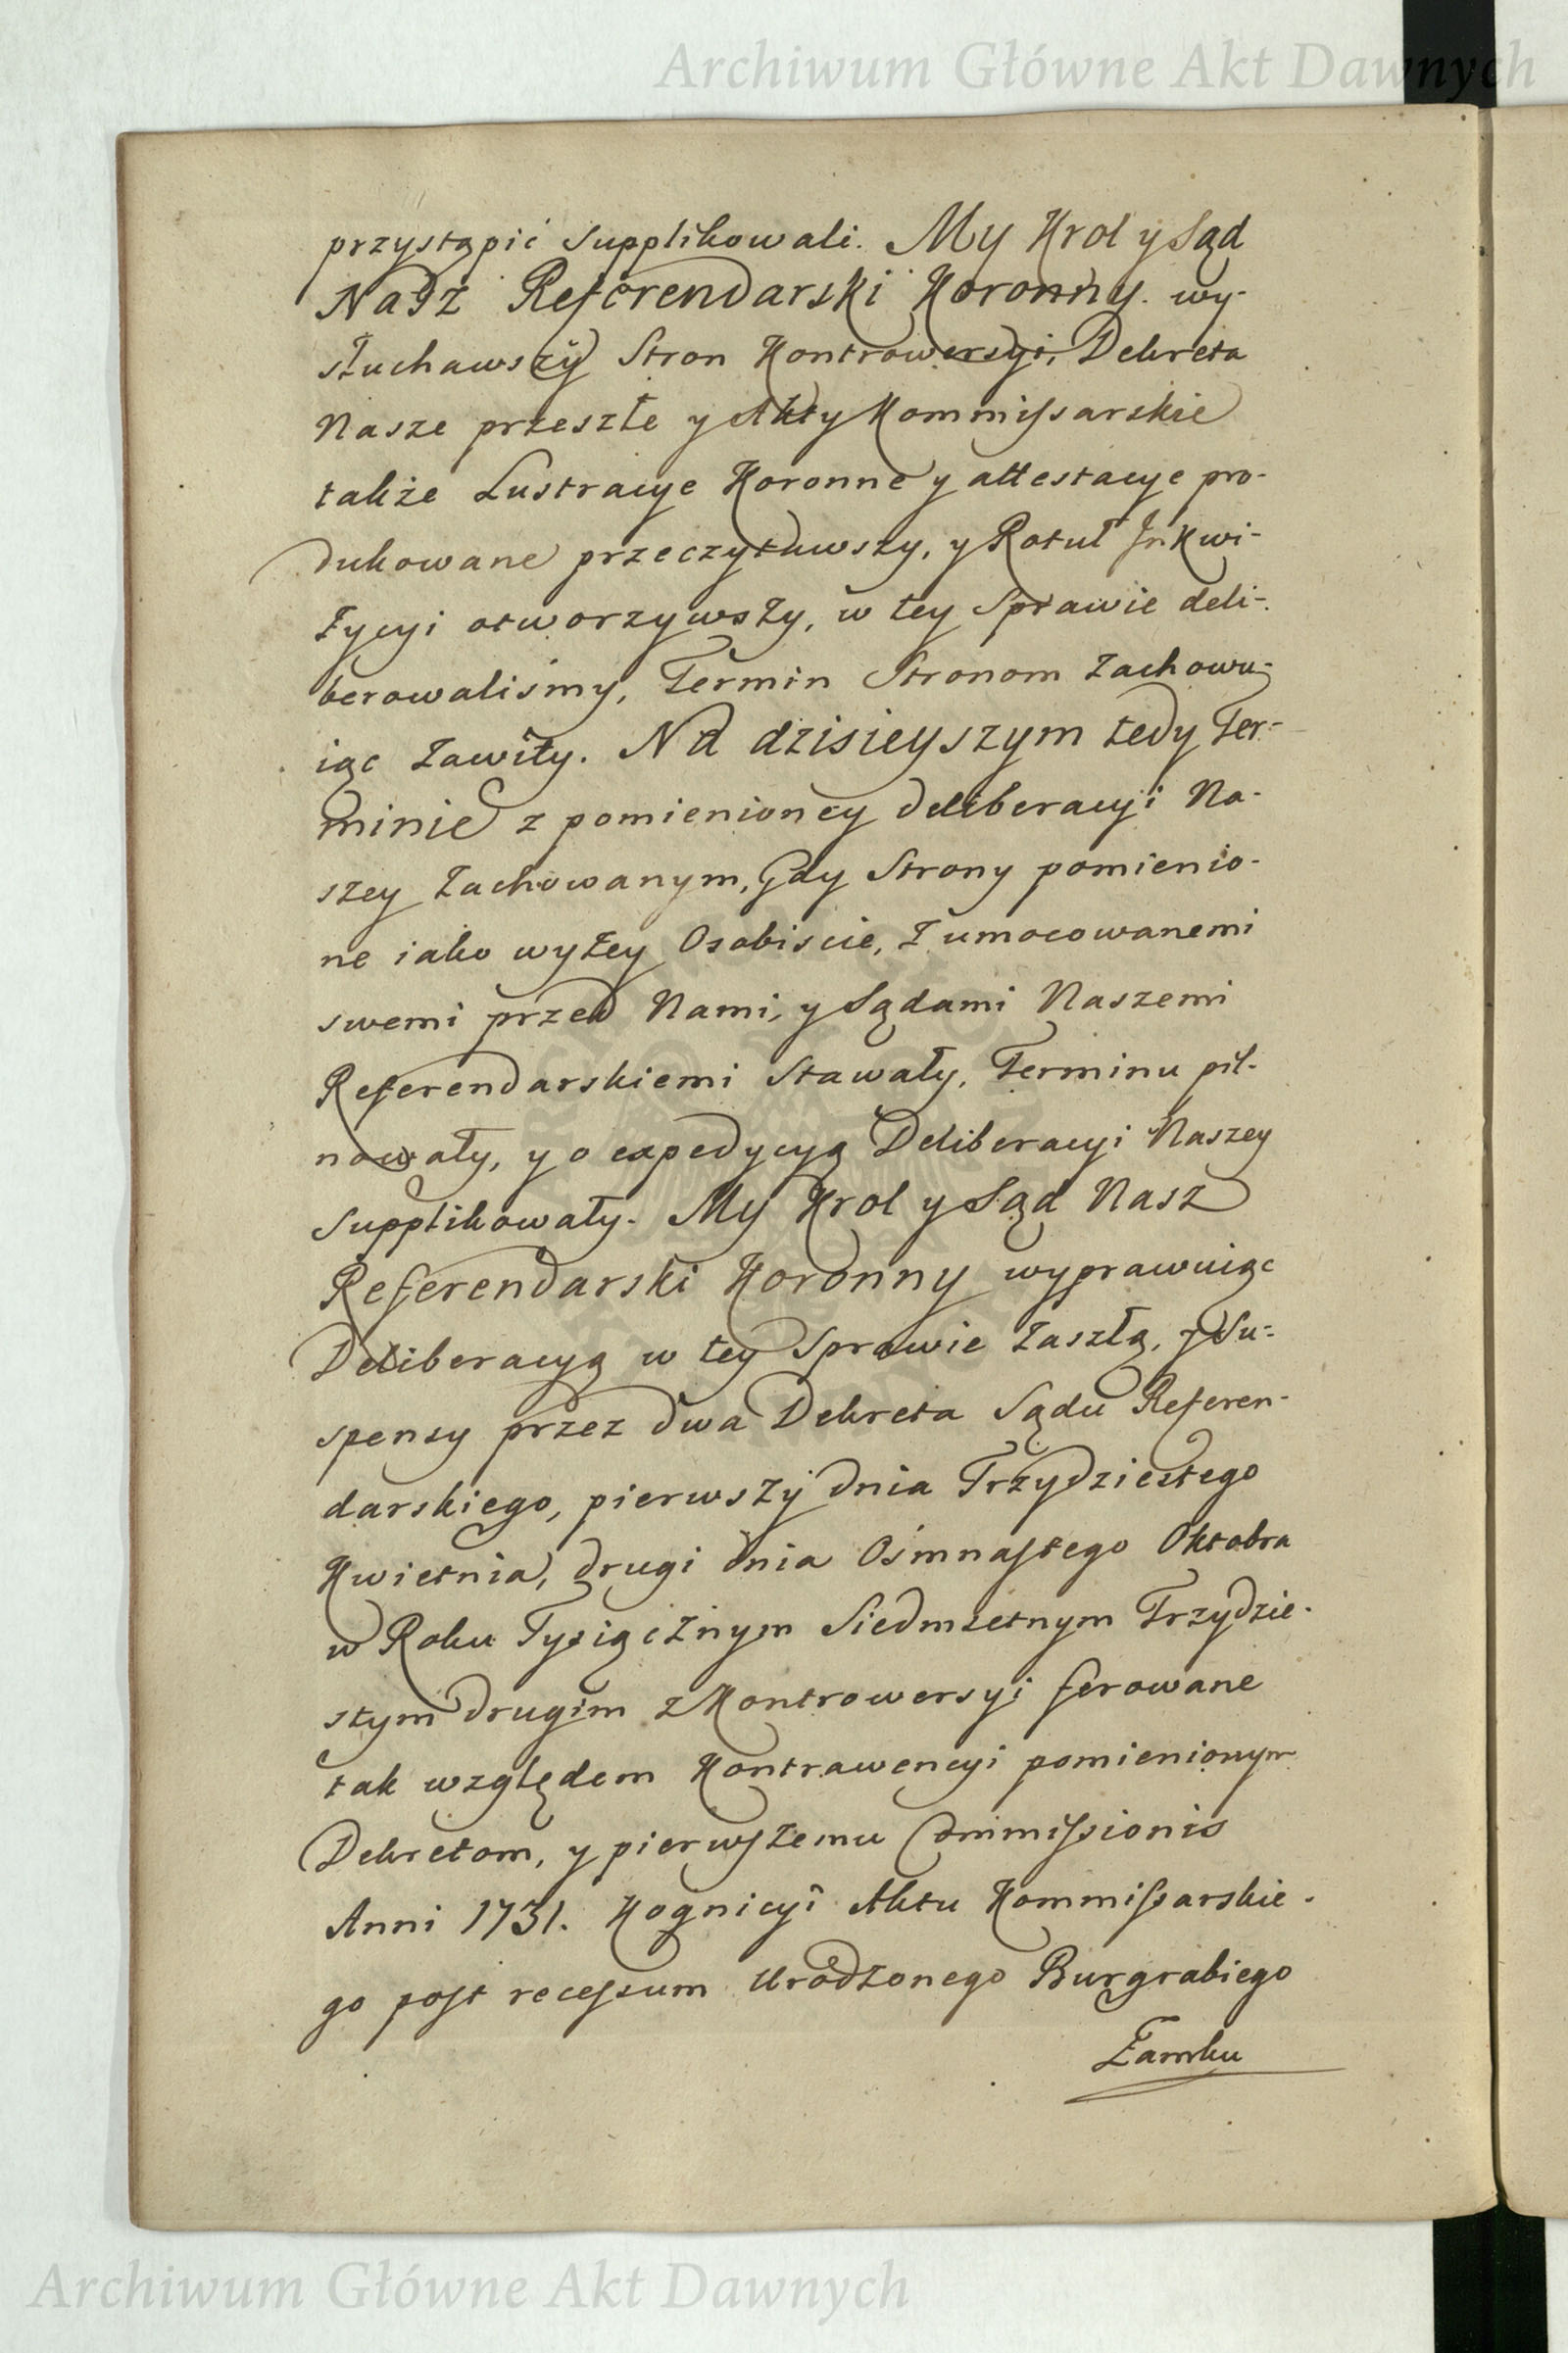 Archiwum Główne Akt Dawnych
przystąpić supplikowali. My Krol y Sąd
Nasz Referendarski Koronny. wy-
słuchawszy Stron Kontrowersyi, Dekreta
Nasze przeszłe y Akty Kommissarskie
także Lustracye Koronne y attestacye pro-
dukowane przeczytawszy, y Rotuł Jnkwi-
zycyi otworzywszy, w tey Sprawie deli-
berowaliśmy, Termin Stronom zachowu-
iąc zawiły. Na dzisieyszym tedy Ter-
minie z pomienioney deliberacyi Na-
szey zachowanym, Gdy Strony pomienio-
ne iako wyżey Osobiscie, z umocowanemi
swemi przed Nami, y Sądami Naszemi
Referendarskiemi Stawały, Terminu pil-
nowały, y o expedycyą Deliberacyi Naszey
supplikowały. My Krol y Sąd Nasz
Referendarski Koronny wyprawuiąc
Deliberacyą w tey Sprawie zaszłą, y Su-
spensy przez dwa Dekreta Sądu Referen-
darskiego, pierwszy dnia Trzydziestego
Kwietnia, drugi dnia Ośmnastego Oktobra
w Roku Tysiącznym Siedmsetnym Trzydzie-
stym drugim z Kontrowersyi ferowane
tak względem Kontrawencyi pomienionym
Dekretom, y pierwszemu Commissionis
Anni 1731. Kognicyi Aktu Kommissarskie-
go post recessum Urodzonego Burgrabiego
Zamku
Archiwum Główne Akt Dawnych